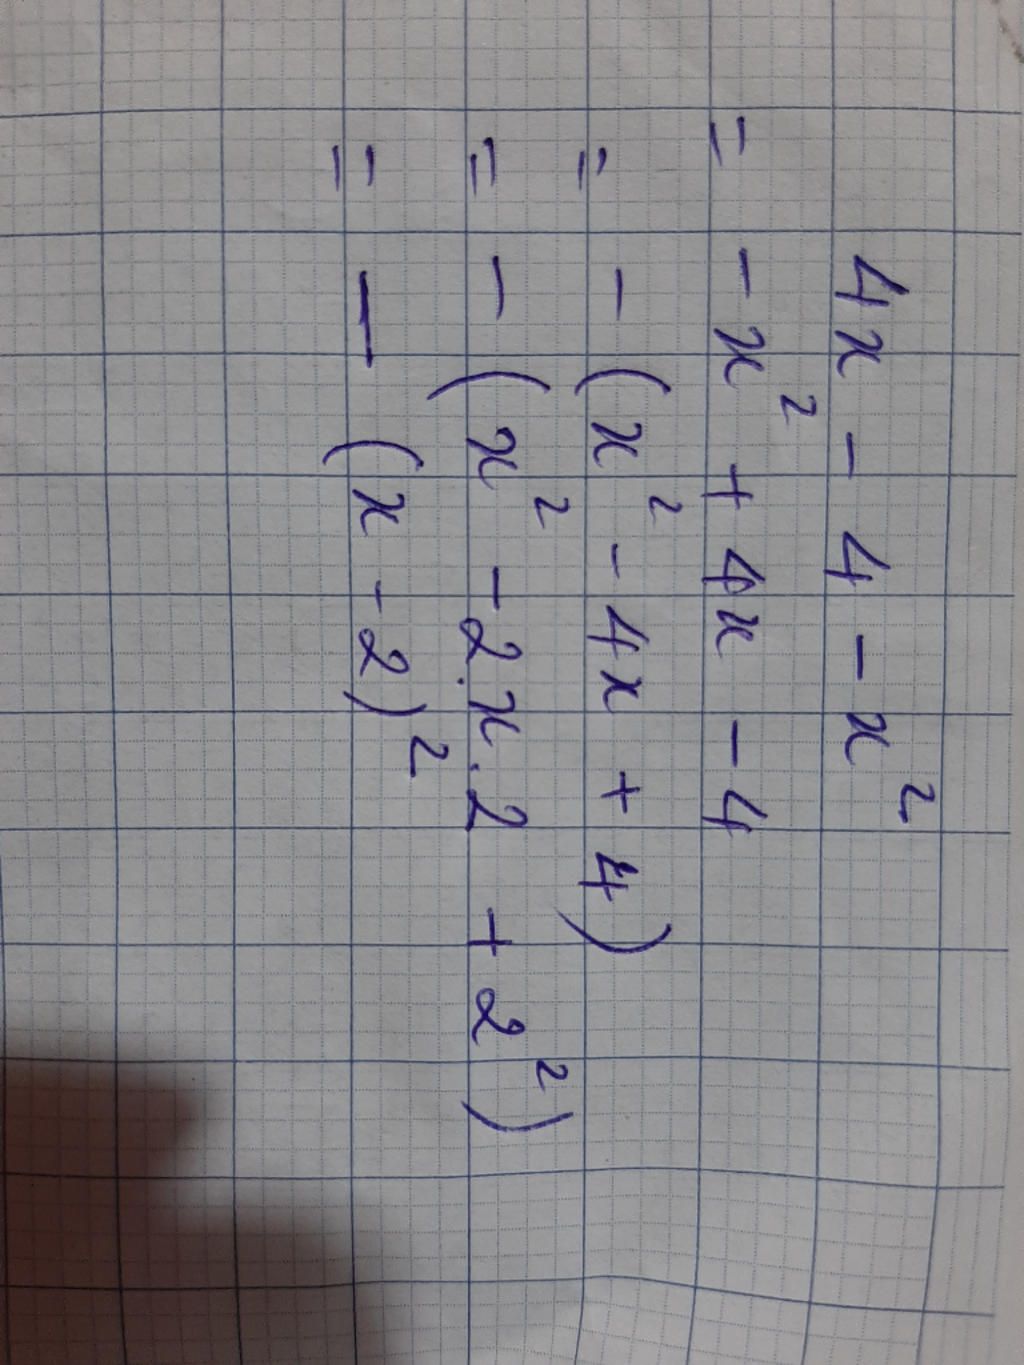 4x - 4 - x²
= - x² + 4x - 4
= - (x² - 4x + 4)
= - (x² - 2.x.2 + 2²)
= - (x - 2)²